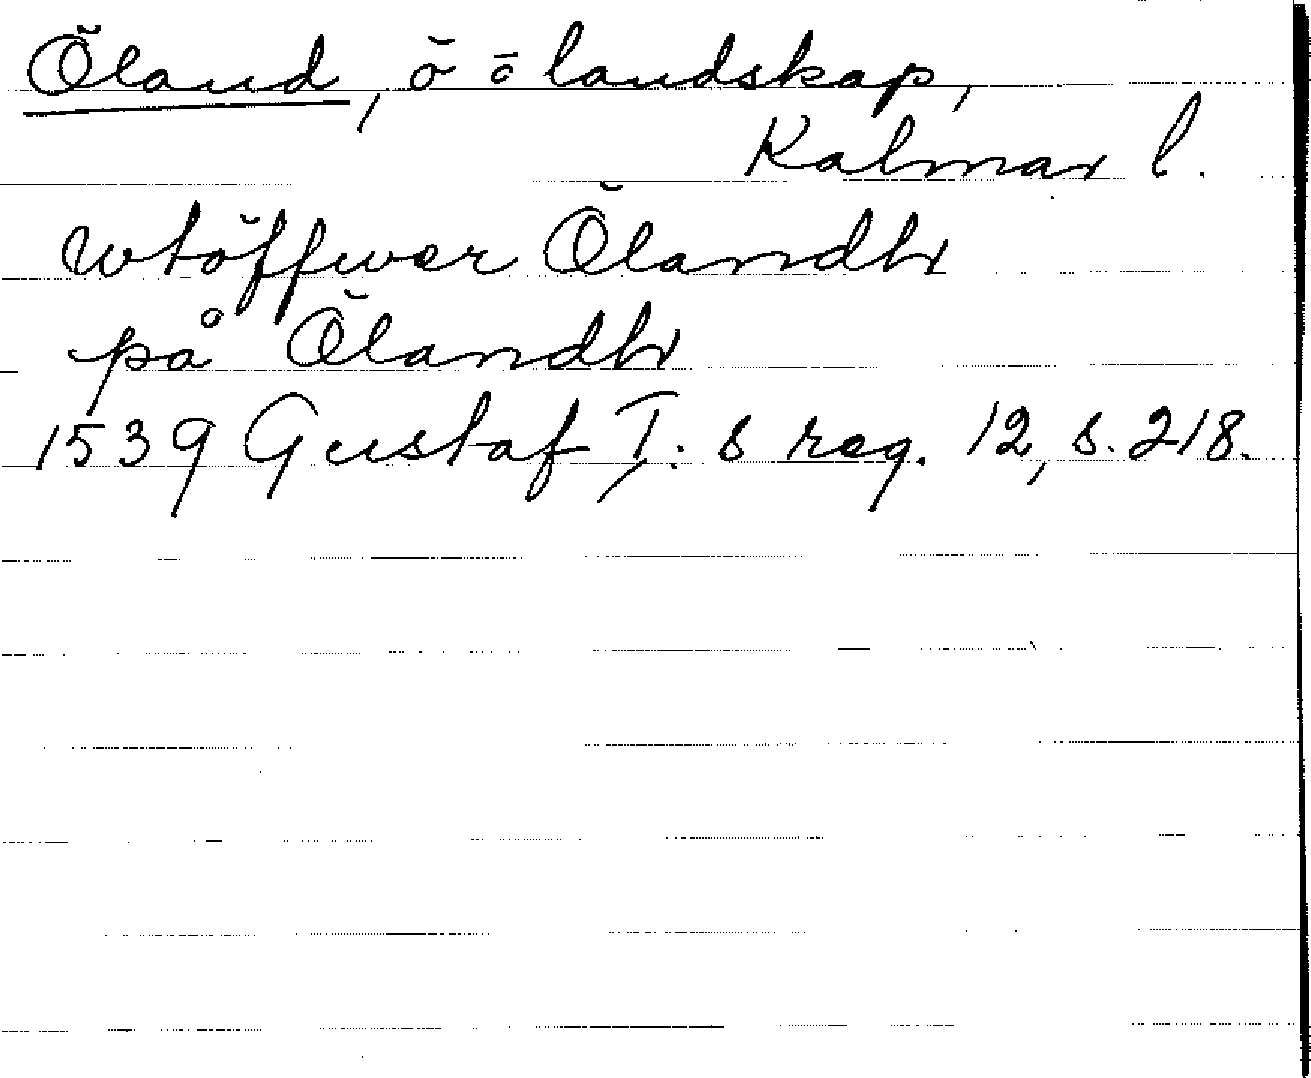 Öland, ö o landskap,
Kalmar l.
wtöffwer Ölandh
på Ölandh
1539 Gustaf I:s reg. 12, s. 218.